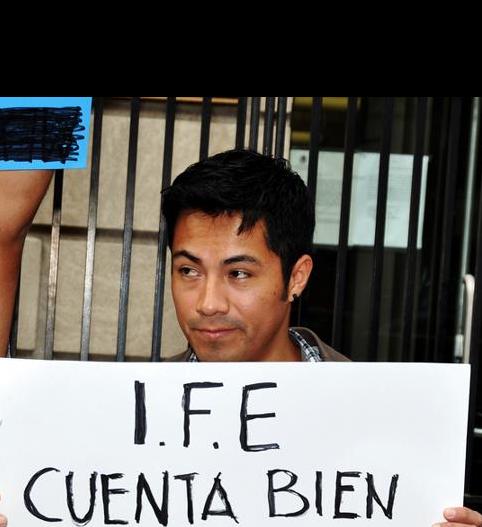 I.F.E
CUENTA BIEN